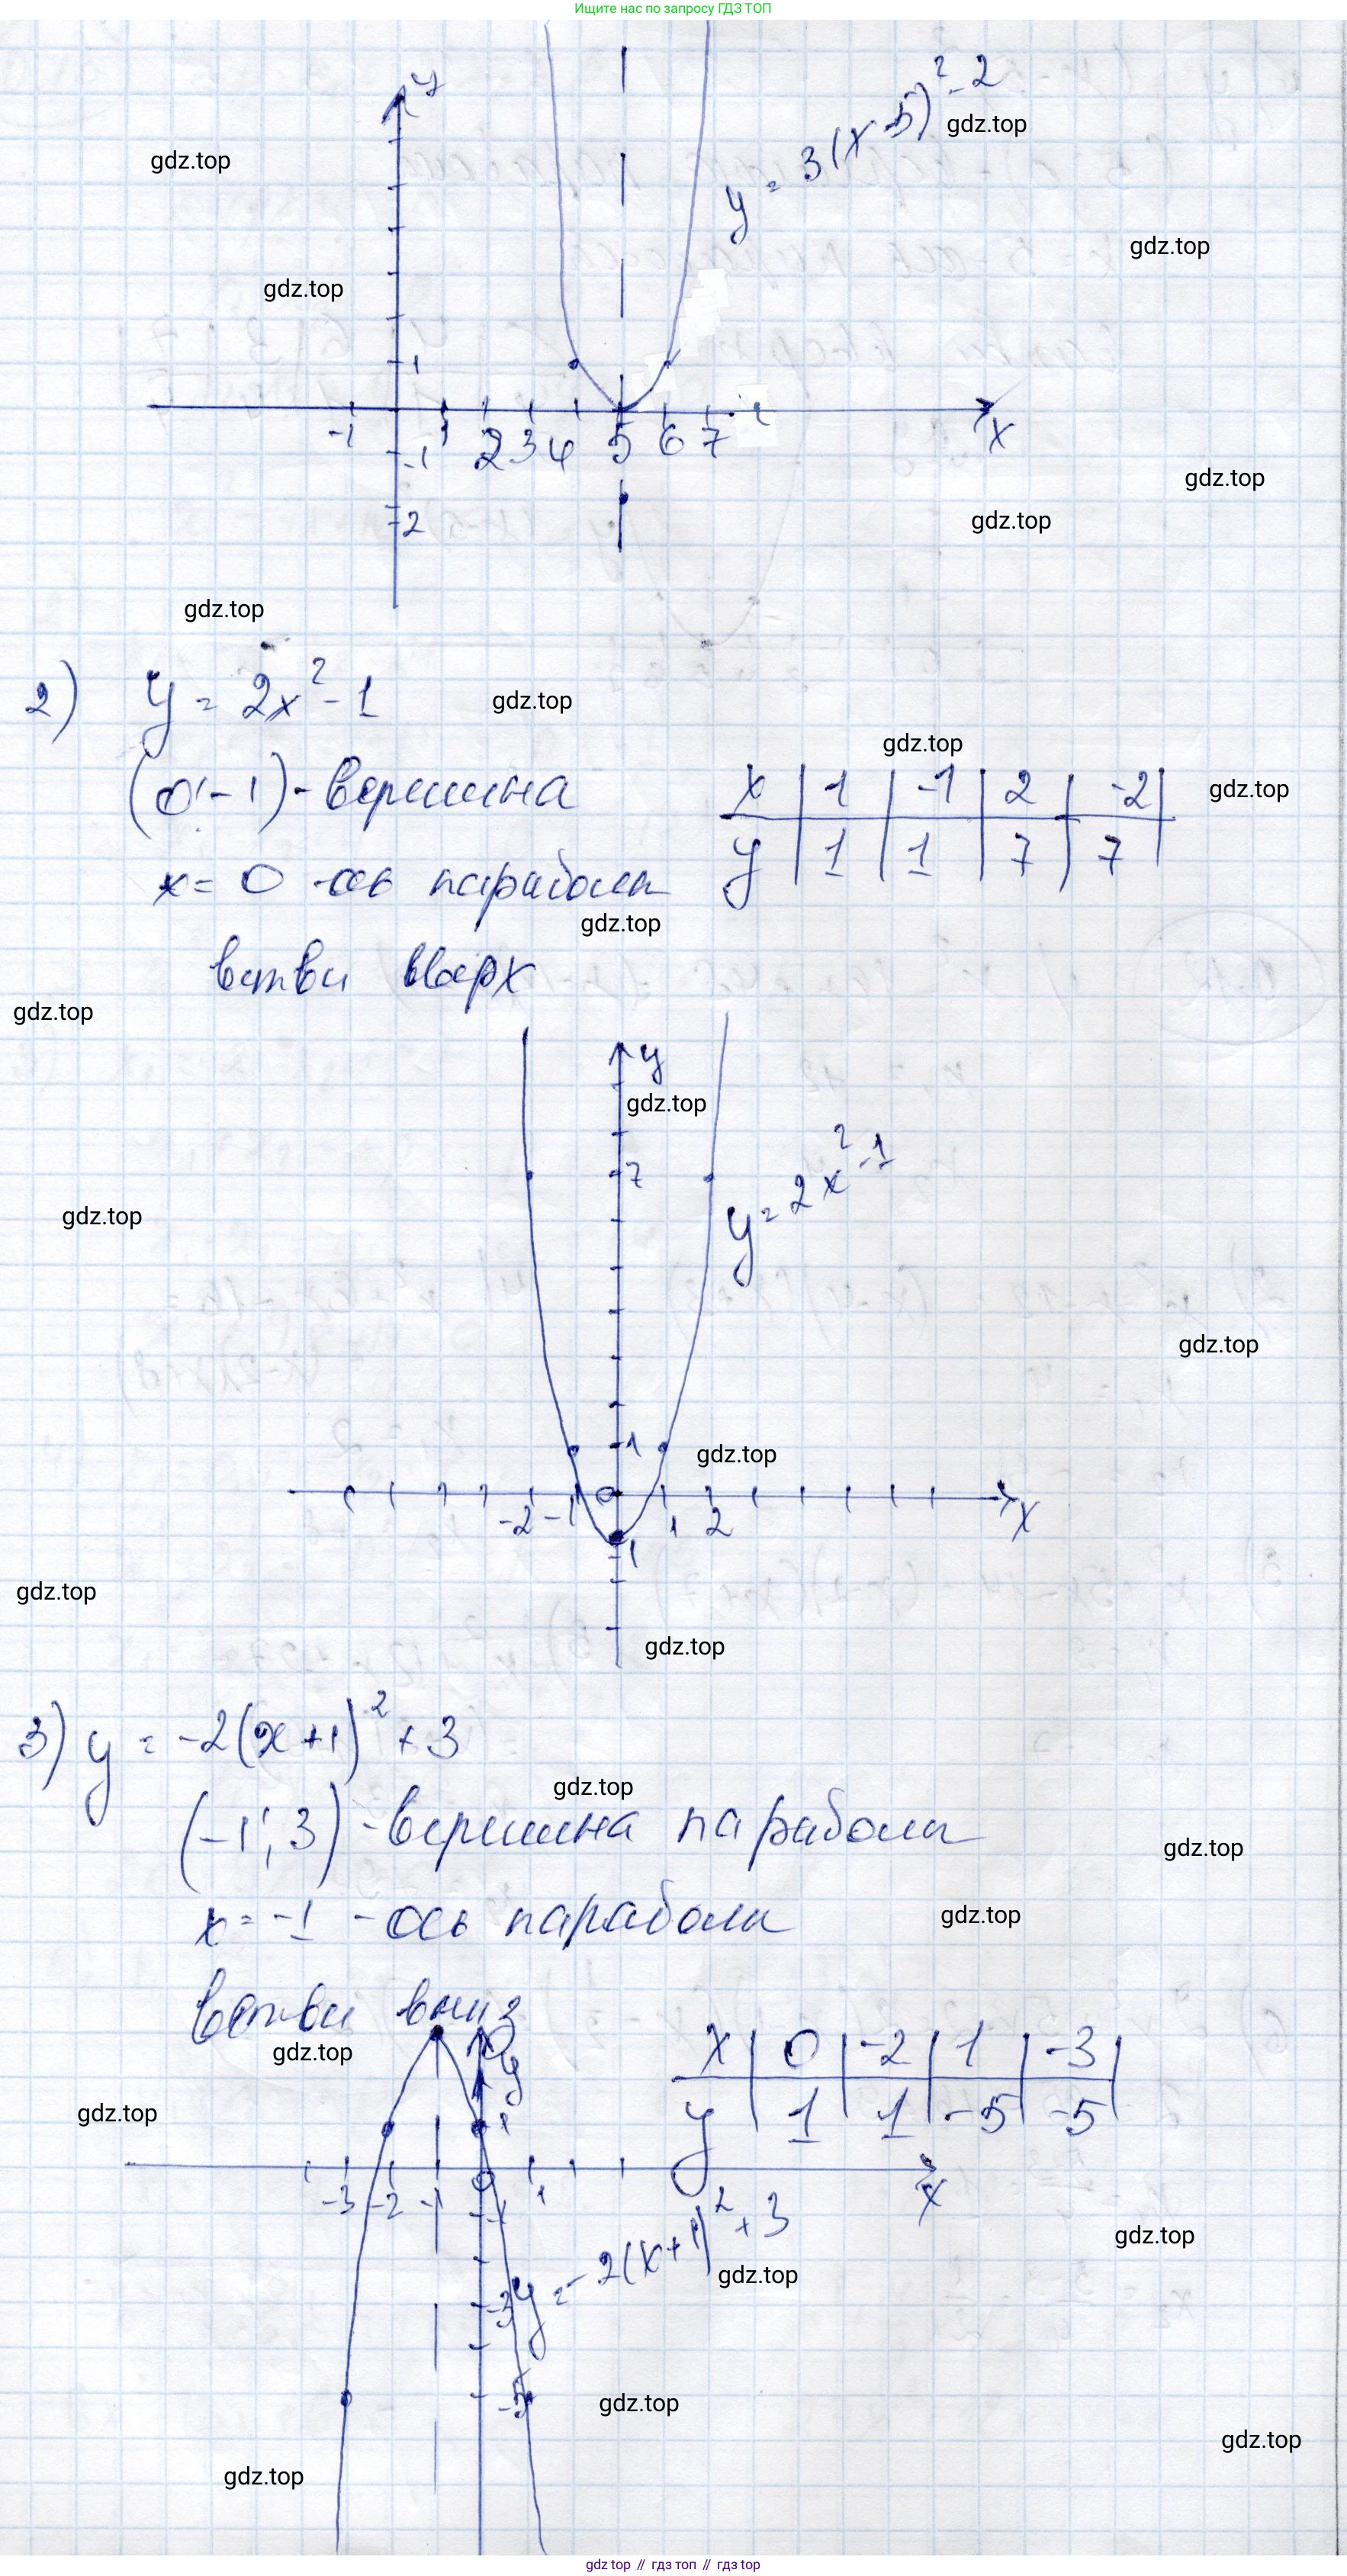 Ищите нас по запросу ГДЗ ТОП
y
y = 3(x-5)²-2
gdz.top
gdz.top
gdz.top
gdz.top
1
-1 1 2 3 4 5 6 7 x
-1
gdz.top
gdz.top
-2
gdz.top
2) y = 2x²-1
gdz.top
gdz.top
(0;-1)-вершина
x | 1 | -1 | 2 | -2 |
gdz.top
y | 1 | 1 | 7 | 7
x=0 -ось параболы
gdz.top
ветви вверх
gdz.top
y
gdz.top
y=2x²-1
7
gdz.top
gdz.top
1
gdz.top
-2 -1 0 1 2 x
-1
gdz.top
gdz.top
3) y = -2(x+1)²+3
gdz.top
(-1; 3)-вершина параболы
gdz.top
x=-1 -ось параболы
gdz.top
ветви вниз
x | 0 | -2 | 1 | -3 |
gdz.top
y | 1 | 1 | -5 | -5
y
gdz.top
1
-3 -2 -1 0 1 x
-1
y=-2(x+1)²+3
gdz.top
gdz.top
-3
-5
gdz.top
gdz.top
gdz.top
gdz top // гдз топ // гдз top